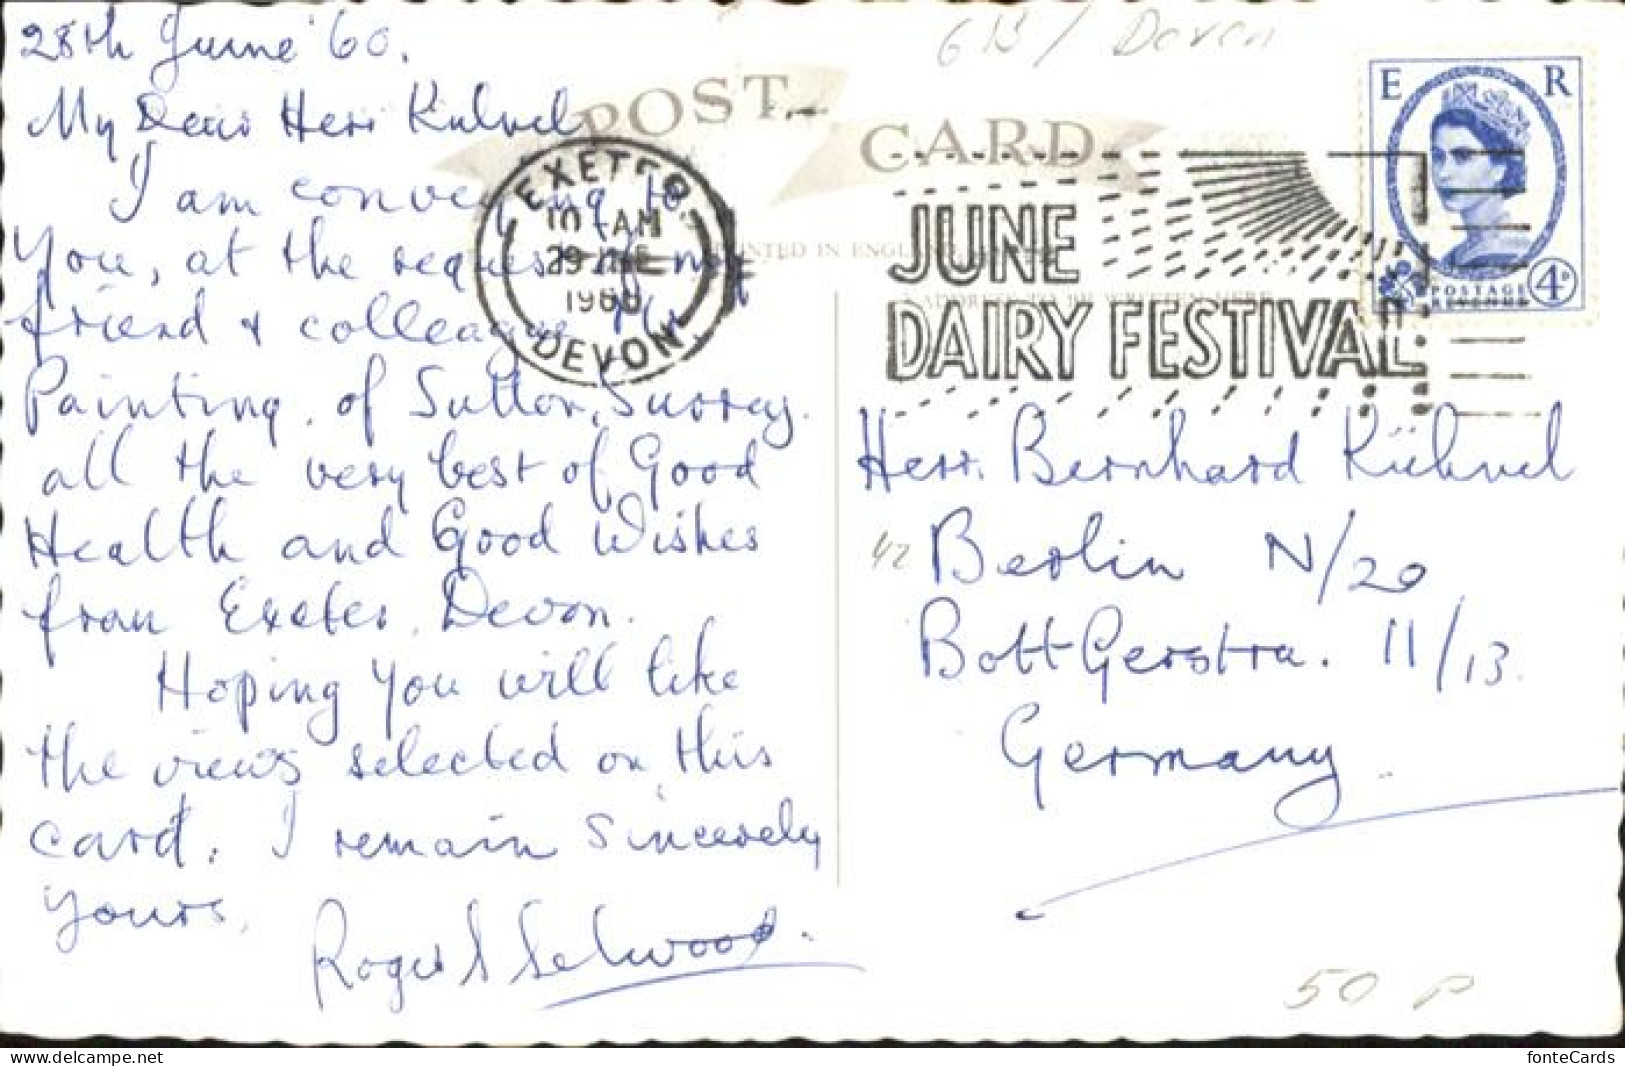 28th June '60.
My Dear Herr Kuhnel
I am conveying to
You, at the request of my
friend & colleague Mr.
Painting, of Sutton, Surrey.
all the very best of Good
Health and Good Wishes
from Exeter, Devon.
Hoping You will like
the views selected on this
card. I remain Sincerely
Yours,
Roger S Selwood.
GB / Devon
POST CARD
PRINTED IN ENGLAND
ADDRESS TO BE WRITTEN HERE
EXETER
10 - AM
29 JNE
1960
DEVON
JUNE
DAIRY FESTIVAL
E R
POSTAGE
REVENUE
4D
Herr. Bernhard Kühnel
42 Berlin N/20
BottGerstra. 11/13.
Germany.
50 P
fonteCards